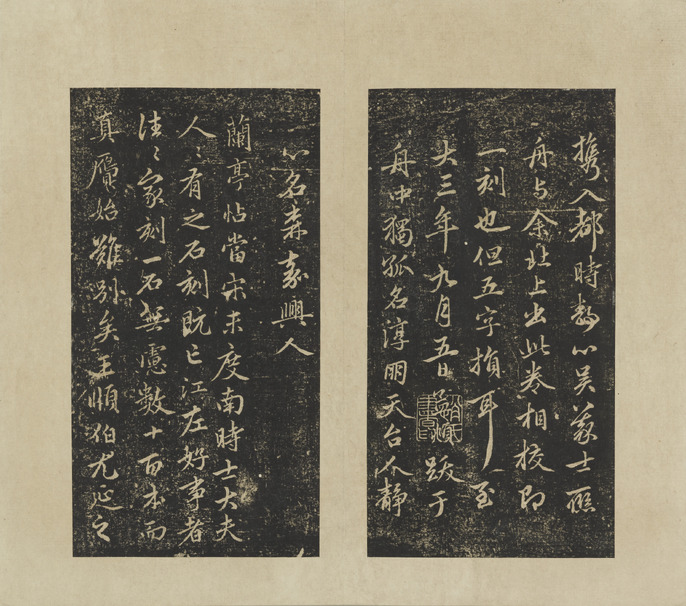 携入都時靜心吳義士聯
舟與余北上出此卷相校即
一刻也但五字損耳至
大三年九月五日跋于
舟中獨孤名淳朋天台人靜
心名森嘉興人
蘭亭帖當宋未度南時士大夫
人〻有之石刻既亡江左好事者
往〻家刻一石無慮數十百本而
真贗始難別矣王順伯尤延之